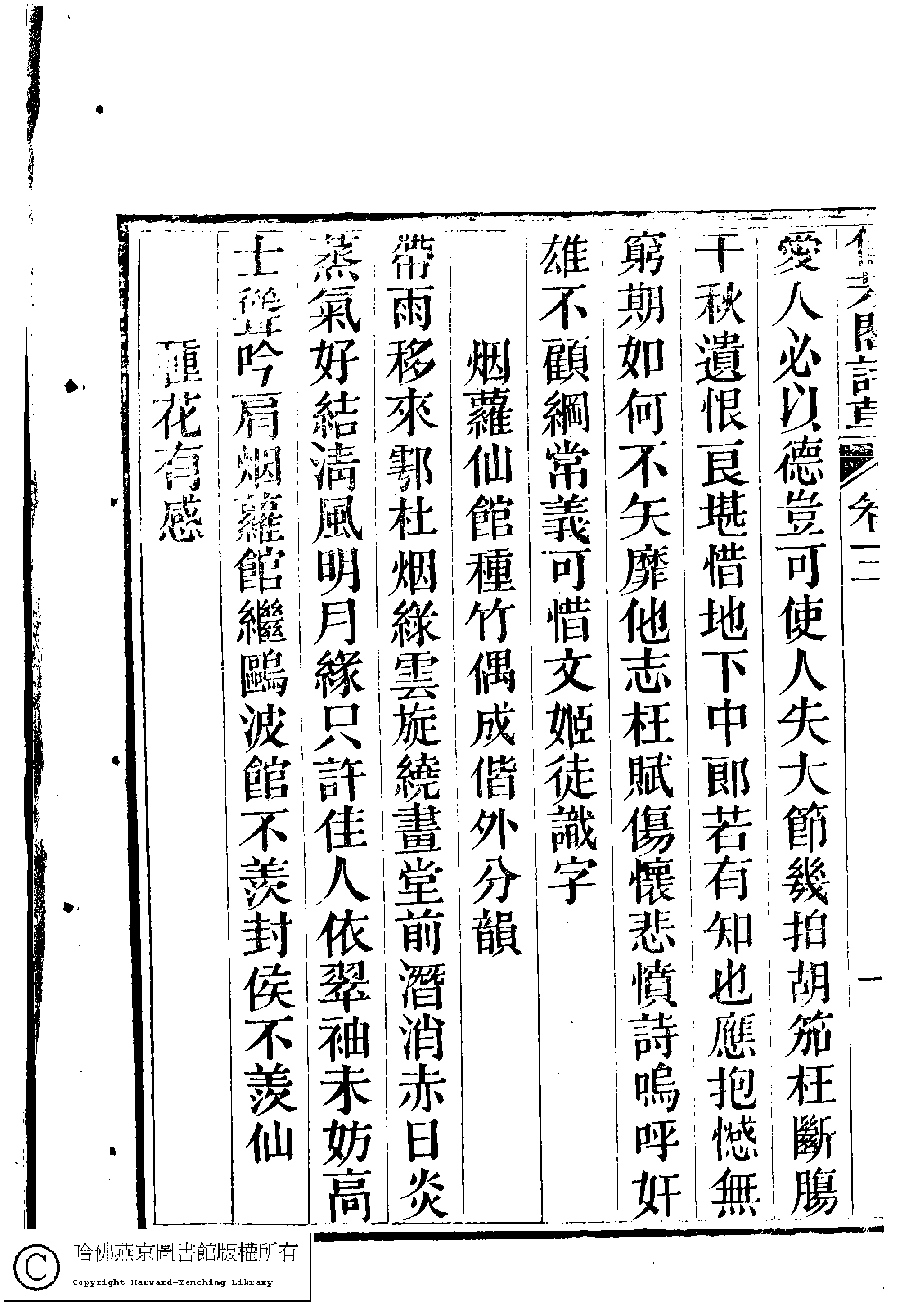 閣詩草 卷二
一
愛人必以德豈可使人失大節幾拍胡笳枉斷腸
千秋遺恨良堪惜地下中郎若有知也應抱憾無
窮期如何不矢靡他志枉賦傷懷悲憤詩嗚呼奸
雄不顧綱常義可惜文姬徒識字
烟蘿仙館種竹偶成偕外分韻
帶雨移來鄠杜烟綠雲旋繞畫堂前潛消赤日炎
蒸氣好結淸風明月緣只許佳人依翠袖未妨高
士聳吟肩烟蘿館繼鷗波館不羨封侯不羨仙
種花有感
哈佛燕京圖書館版權所有
Copyright Harvard-Yenching Library